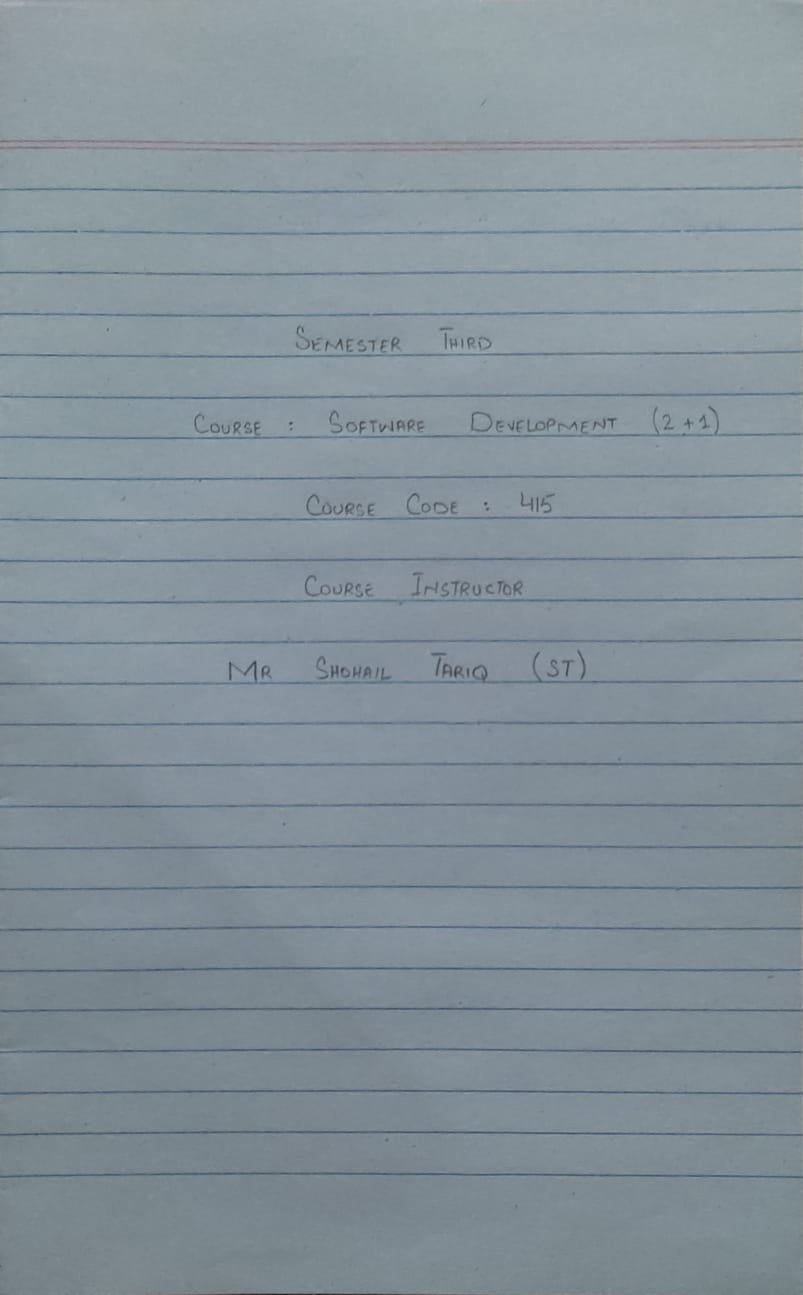 SEMESTER THIRD
COURSE : SOFTWARE DEVELOPMENT (2+1)
COURSE CODE : 415
COURSE INSTRUCTOR
MR SHOHAIL TARIQ (ST)